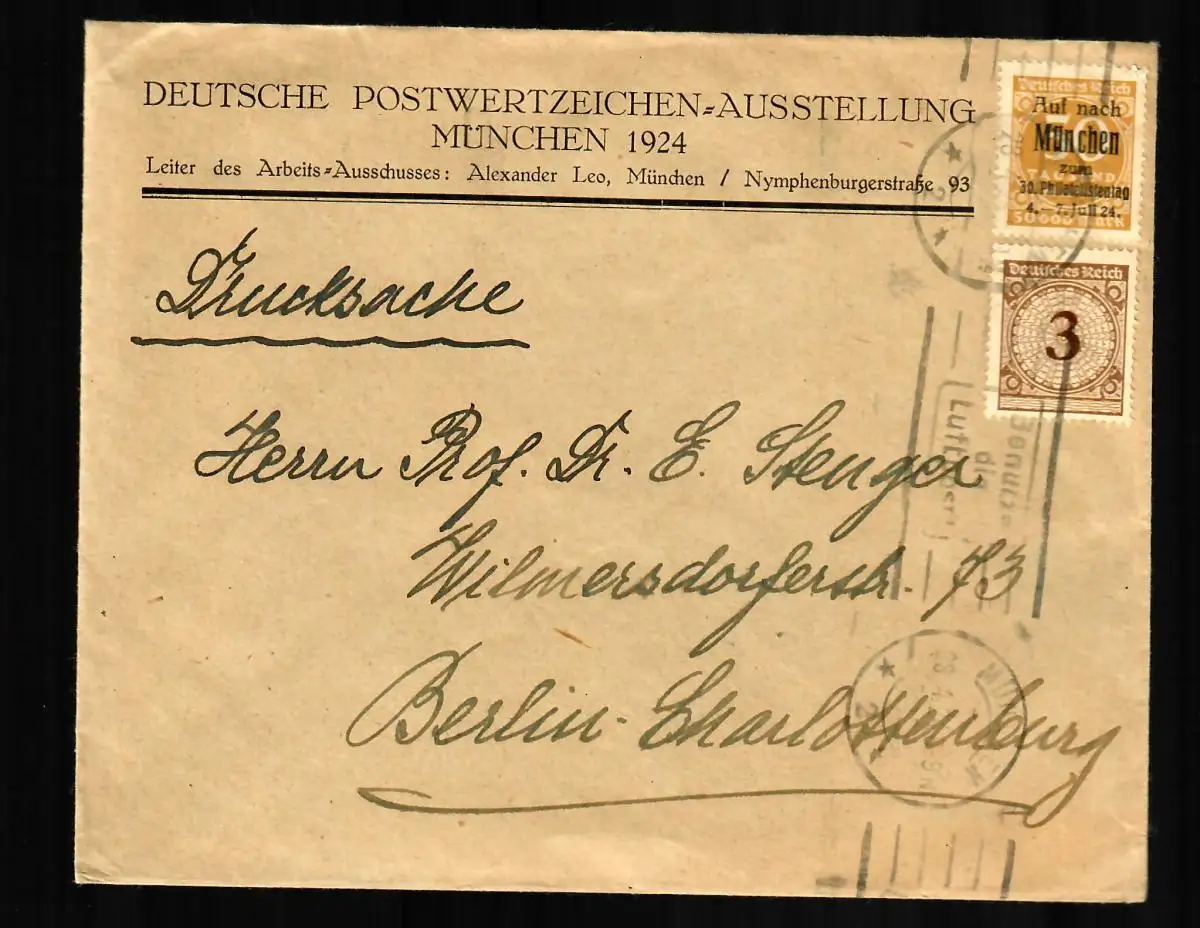 DEUTSCHE POSTWERTZEICHEN=AUSSTELLUNG
MÜNCHEN 1924
Leiter des Arbeits=Ausschusses: Alexander Leo, München / Nymphenburgerstraße 93
Deutsches Reich
50
TAUSEND
50000 Mark
Auf nach
München
zum
30. Philatelistentag
4. – 7. Juli 24.
Deutsches Reich
3
Drucksache
Herrn Prof. Dr. E. Stenger
Wilmersdorferstr. 73
Berlin-Charlottenburg
Benutze
die
Luftpost
MÜNCHEN
2